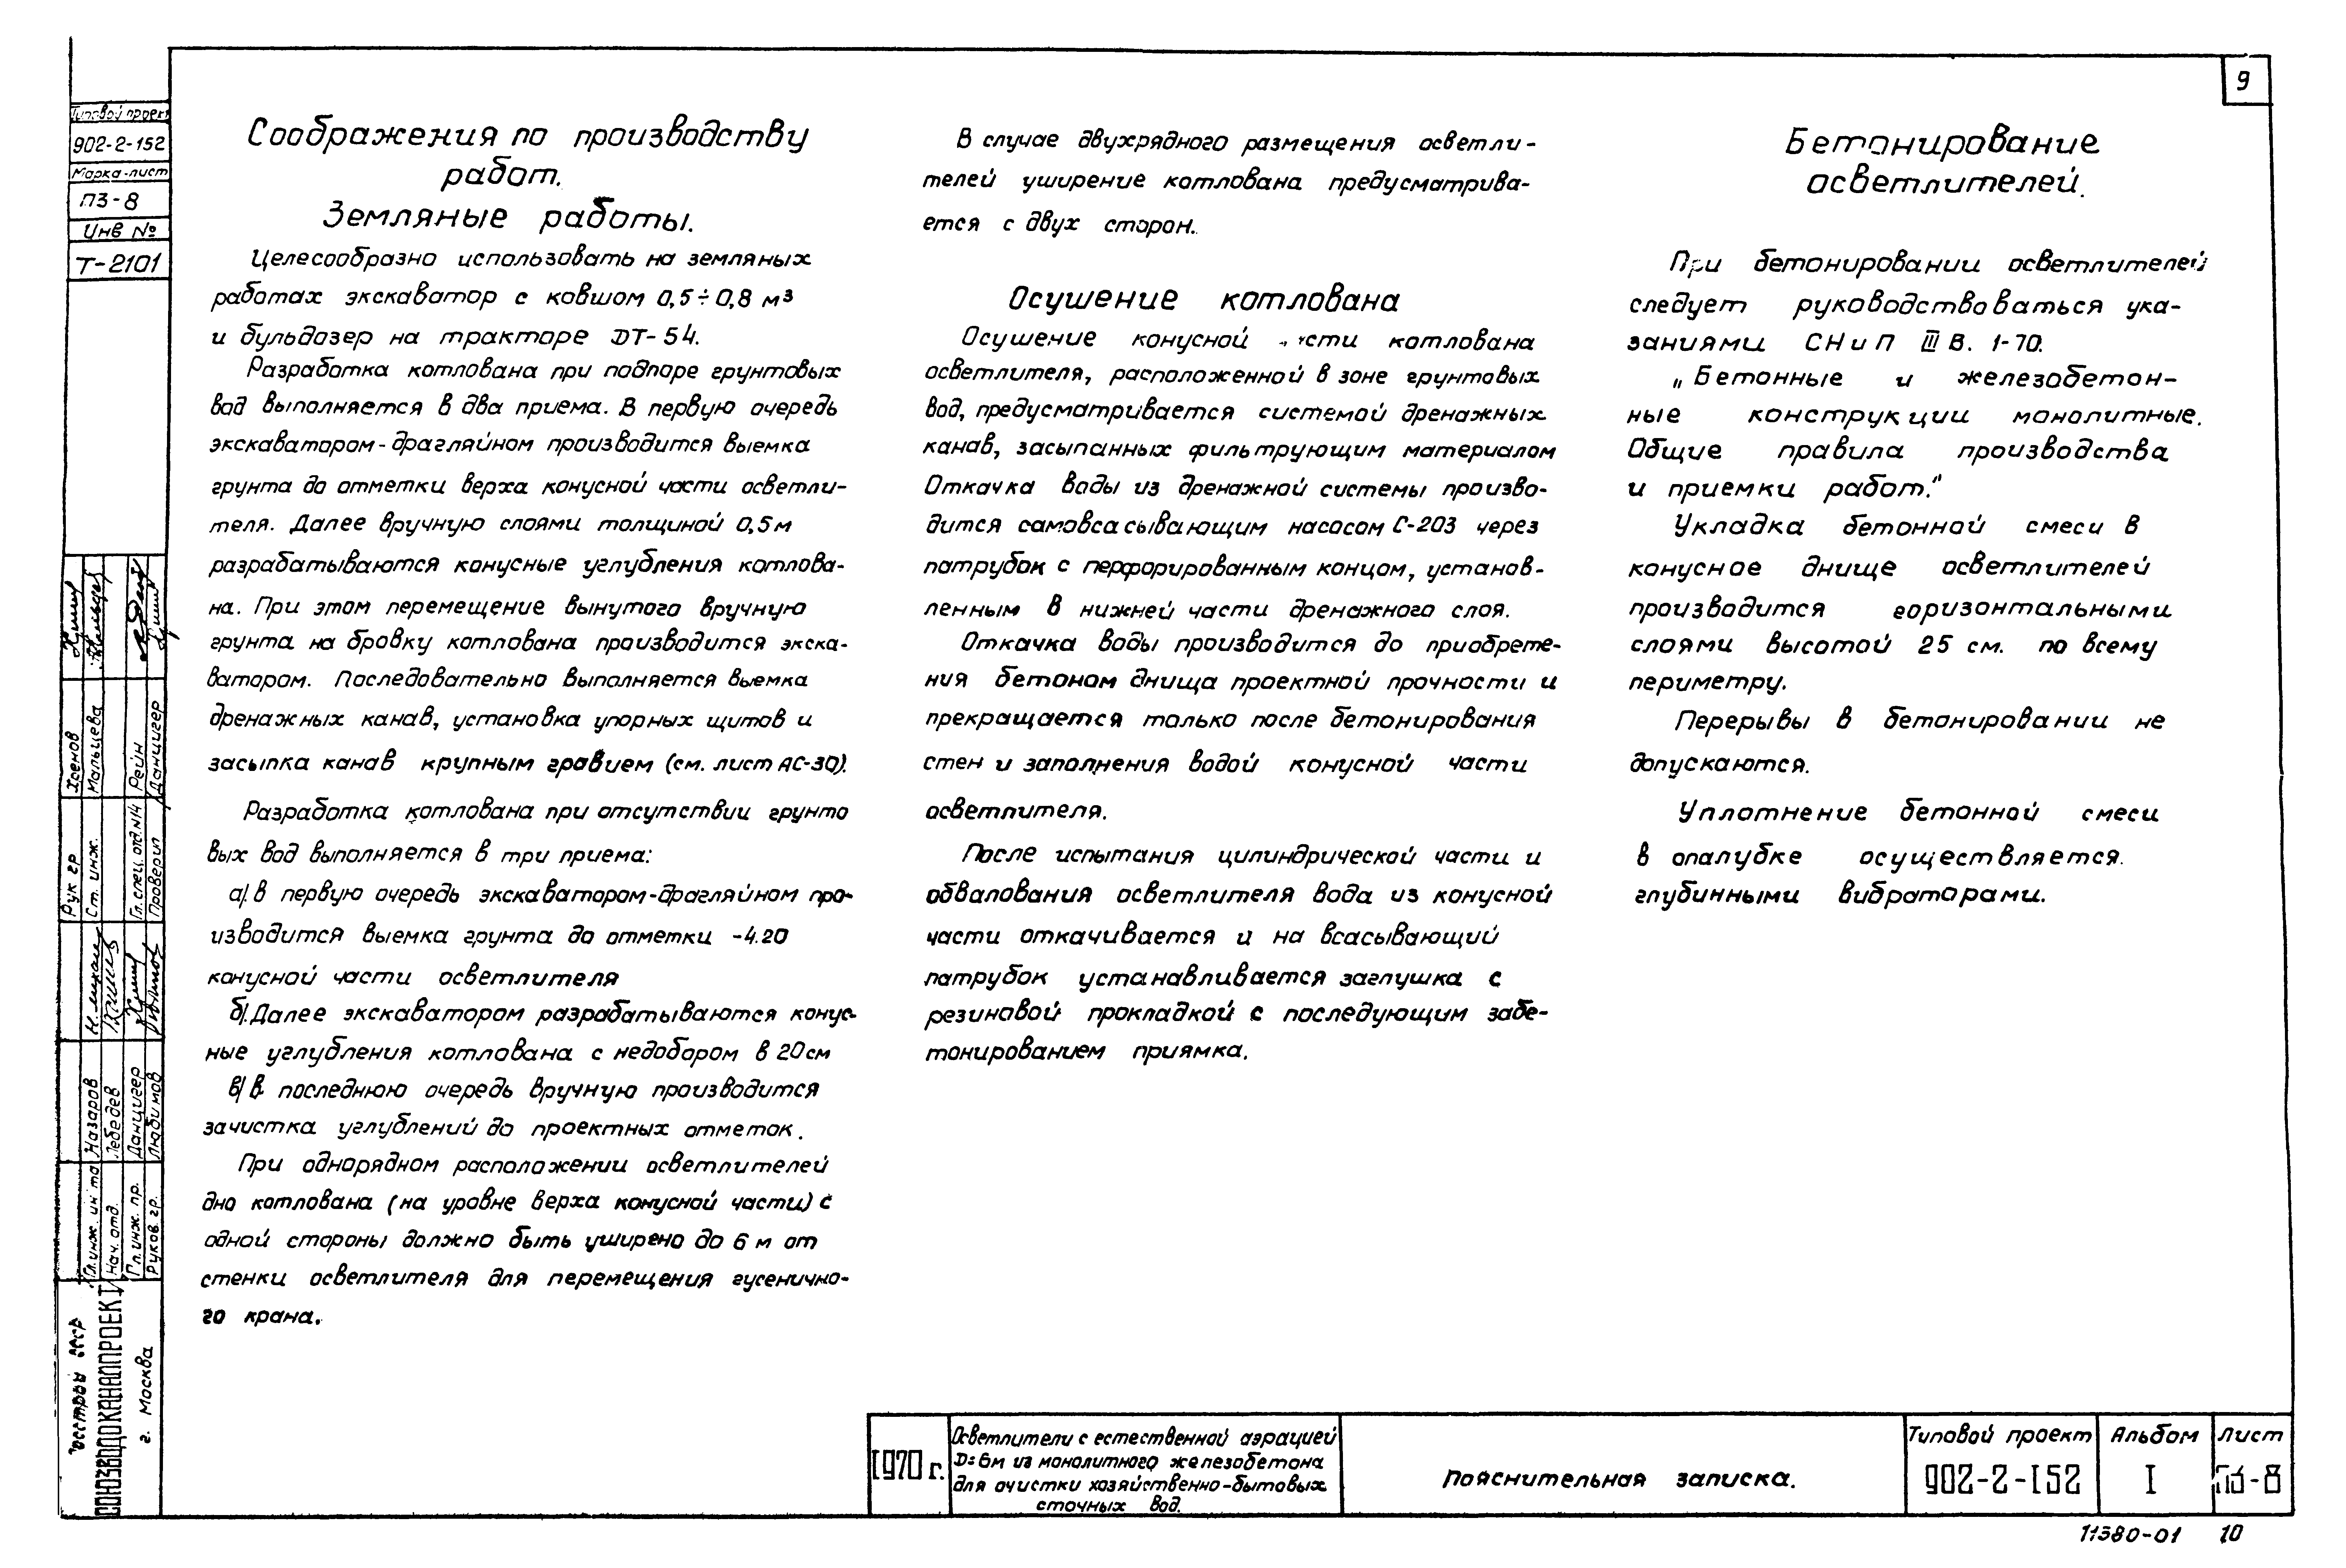 9
Типовой проект
902-2-152
Марка-лист
ПЗ-8
Инв №
Т-2101
Соображения по производству
работ.
Земляные работы.
Целесообразно использовать на земляных
работах экскаватор с ковшом 0,5÷0,8 м³
и бульдозер на тракторе ДТ-54.
Разработка котлована при подпоре грунтовых
вод выполняется в два приема. В первую очередь
экскаватором-драглайном производится выемка
грунта до отметки верха конусной части осветли-
теля. Далее вручную слоями толщиной 0,5м
разрабатываются конусные углубления котлова-
на. При этом перемещение вынутого вручную
грунта на бровку котлована производится экска-
ватором. Последовательно выполняется выемка
дренажных канав, установка упорных щитов и
засыпка канав крупным гравием (см. лист АС-30).
Разработка котлована при отсутствии грунто
вых вод выполняется в три приема:
а/. в первую очередь экскаватором-драглайном про-
изводится выемка грунта до отметки -4.20
конусной части осветлителя
б/. Далее экскаватором разрабатываются конус-
ные углубления котлована с недобором в 20см
в/ в последнюю очередь вручную производится
зачистка углублений до проектных отметок.
При однорядном расположении осветлителей
дно котлована (на уровне верха конусной части) с
одной стороны должно быть уширено до 6 м от
стенки осветлителя для перемещения гусенично-
го крана.
В случае двухрядного размещения осветли-
телей уширение котлована предусматрива-
ется с двух сторон.
Осушение котлована
Осушение конусной сти котлована
осветлителя, расположенной в зоне грунтовых
вод, предусматривается системой дренажных
канав, засыпанных фильтрующим материалом
Откачка воды из дренажной системы произво-
дится самовсасывающим насосом С-203 через
патрубок с перфорированным концом, установ-
ленным в нижней части дренажного слоя.
Откачка воды производится до приобрете-
ния бетоном днища проектной прочности и
прекращается только после бетонирования
стен и заполнения водой конусной части
осветлителя.
После испытания цилиндрической части и
обвалования осветлителя вода из конусной
части откачивается и на всасывающий
патрубок устанавливается заглушка с
резиновой прокладкой с последующим забе-
тонированием приямка.
Бетонирование
осветлителей.
При бетонировании осветлителей
следует руководствоваться ука-
заниями СНиП III В. 1-70.
„Бетонные и железобетон-
ные конструкции монолитные.
Общие правила производства
и приемки работ."
Укладка бетонной смеси в
конусное днище осветлителей
производится горизонтальными
слоями высотой 25 см. по всему
периметру.
Перерывы в бетонировании не
допускаются.
Уплотнение бетонной смеси
в опалубке осуществляется
глубинными вибраторами.
Рук гр Хсенов
Ст. инж. Мальцева
Гл. спец. отд. N14 Рейн
Проверил Данцигер
Гл. инж. ин-та Назаров
Нач. отд. Лебедев
Гл. инж. пр. Данцигер
Руков. гр. Любимов
Госстрой СССР
СОЮЗВОДОКАНАЛПРОЕКТ
г. Москва
1970 г.
Осветлители с естественной аэрацией
D=6м из монолитного железобетона
для очистки хозяйственно-бытовых
сточных вод.
Пояснительная записка.
Типовой проект
902-2-152
Альбом
I
Лист
ПЗ-8
11380-01 10